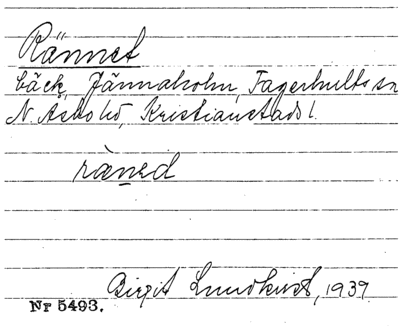 Rännet
bäck, Jännaholm, Fagerhults sn
N. Åsbo hd, Kristianstads l.
ràned
Birgit Lundkvist, 1939
Nr 5493.